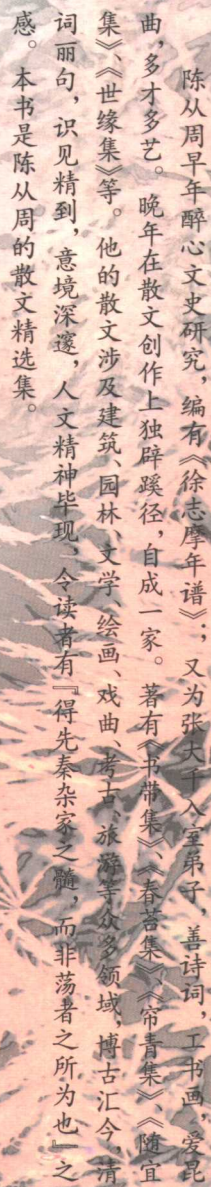 陈从周早年醉心文史研究，编有《徐志摩年谱》；又为张大千入室弟子，善诗词，工书画，爱昆
曲，多才多艺。晚年在散文创作上独辟蹊径，自成一家。著有《书带集》、《春苔集》、《帘青集》、《随宜
集》、《世缘集》等。他的散文涉及建筑、园林、文学、绘画、戏曲、考古、旅游等众多领域，博古汇今，清
词丽句，识见精到，意境深邃，人文精神毕现，令读者有『得先秦杂家之髓，而非荡者之所为也』之
感。本书是陈从周的散文精选集。